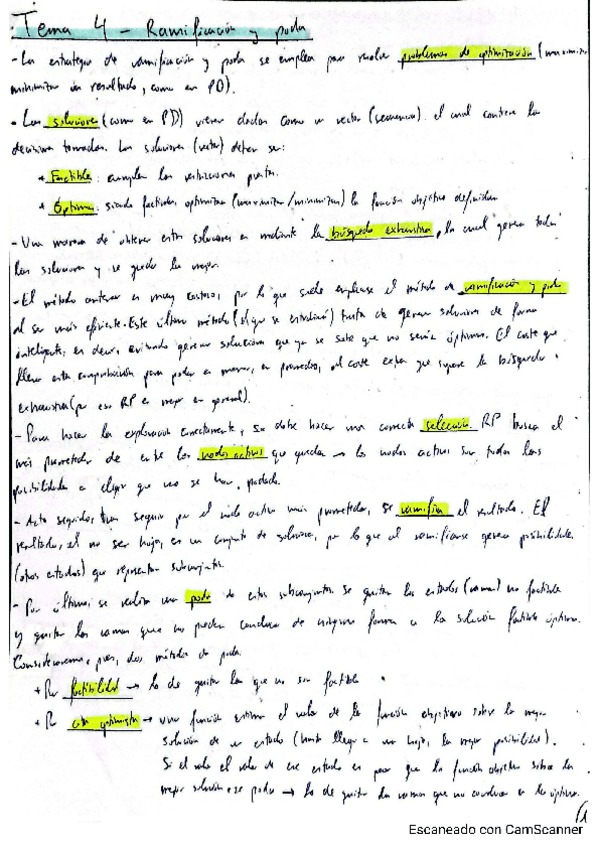 Tema 4 - Ramificación y poda
- La estrategia de ramificación y poda se emplea para resolver problemas de optimización (maximizar
minimizar un resultado, como en PD).
- Las soluciones (como en PD) vienen dadas como un vector (secuencia) el cual contiene las
decisiones tomadas. Las soluciones (vector) deben ser:
* Factible: cumplen las restricciones
* Óptima: siendo factibles optimizan (maximizar/minimizar) la función objetivo definida
- Una manera de obtener estas soluciones es mediante la búsqueda exhaustiva, la cual genera todas
las soluciones y se queda la mejor.
- El método anterior es muy costoso, por lo que suele emplearse el método de ramificación y poda
al ser más eficiente. Este último método trata de generar soluciones de forma
inteligente, es decir, evitando generar soluciones que ya se sabe que no serían óptimas. El coste que
lleva esta comprobación para podar es menor, en promedio, al coste extra que supone la búsqueda
exhaustiva (por eso RP es mejor en general).
- Para hacer la exploración correctamente, se debe hacer una correcta selección. RP busca el
más prometedor de entre los nodos activos que quedan → los nodos activos son todas las
posibilidades a elegir que no se han podado.
- Acto seguido, tras seguir por el nodo activo más prometedor, se ramifica el resultado. El
resultado, al no ser hoja, es un conjunto de soluciones, por lo que al ramificarse genera posibilidades
(otros estados) que representan subconjuntos.
- Por último, se realiza una poda de estos subconjuntos. Se quitan los estados (ramas) no factibles
y quitar las ramas que no pueden conducir de ninguna forma a la solución factible óptima.
Consideraremos, pues, dos métodos de poda:
* Por factibilidad → lo de quitar las que no son factibles
* Por cota optimista → una función estima el valor de la función objetivo sobre la mejor
solución de un estado (hasta llegar a una hoja, la mejor posibilidad).
Si el valor de ese estado es peor que la función objetivo sobre la
mejor solución se poda → lo de quitar las ramas que no conducen a la óptima.
1
Escaneado con CamScanner